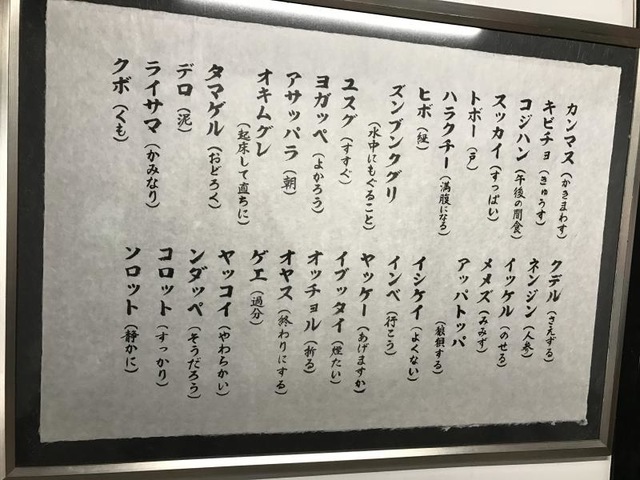 カンマス（かきまわす）
キビチョ（きゅうす）
コジハン（午後の間食）
スッカイ（すっぱい）
トボー（戸）
ハラクチー（満腹になる）
ヒボ（紐）
ズンブンクグリ
（水中にもぐること）
ユスグ（すすぐ）
ヨガッペ（よかろう）
アサッパラ（朝）
オキムグレ
（起床して直ちに）
タマゲル（おどろく）
デロ（泥）
ライサマ（かみなり）
クボ（くも）
クデル（さえずる）
ネンジン（人参）
イッケル（のせる）
メメズ（みみず）
アッパトッパ
（狼狽する）
イシケイ（よくない）
インベ（行こう）
ヤッケー（あげますか）
イブッタイ（煙たい）
オッチョル（折る）
オヤス（終わりにする）
ゲエ（過分）
ヤッコイ（やわらかい）
ンダッペ（そうだろう）
コロット（すっかり）
ソロット（静かに）